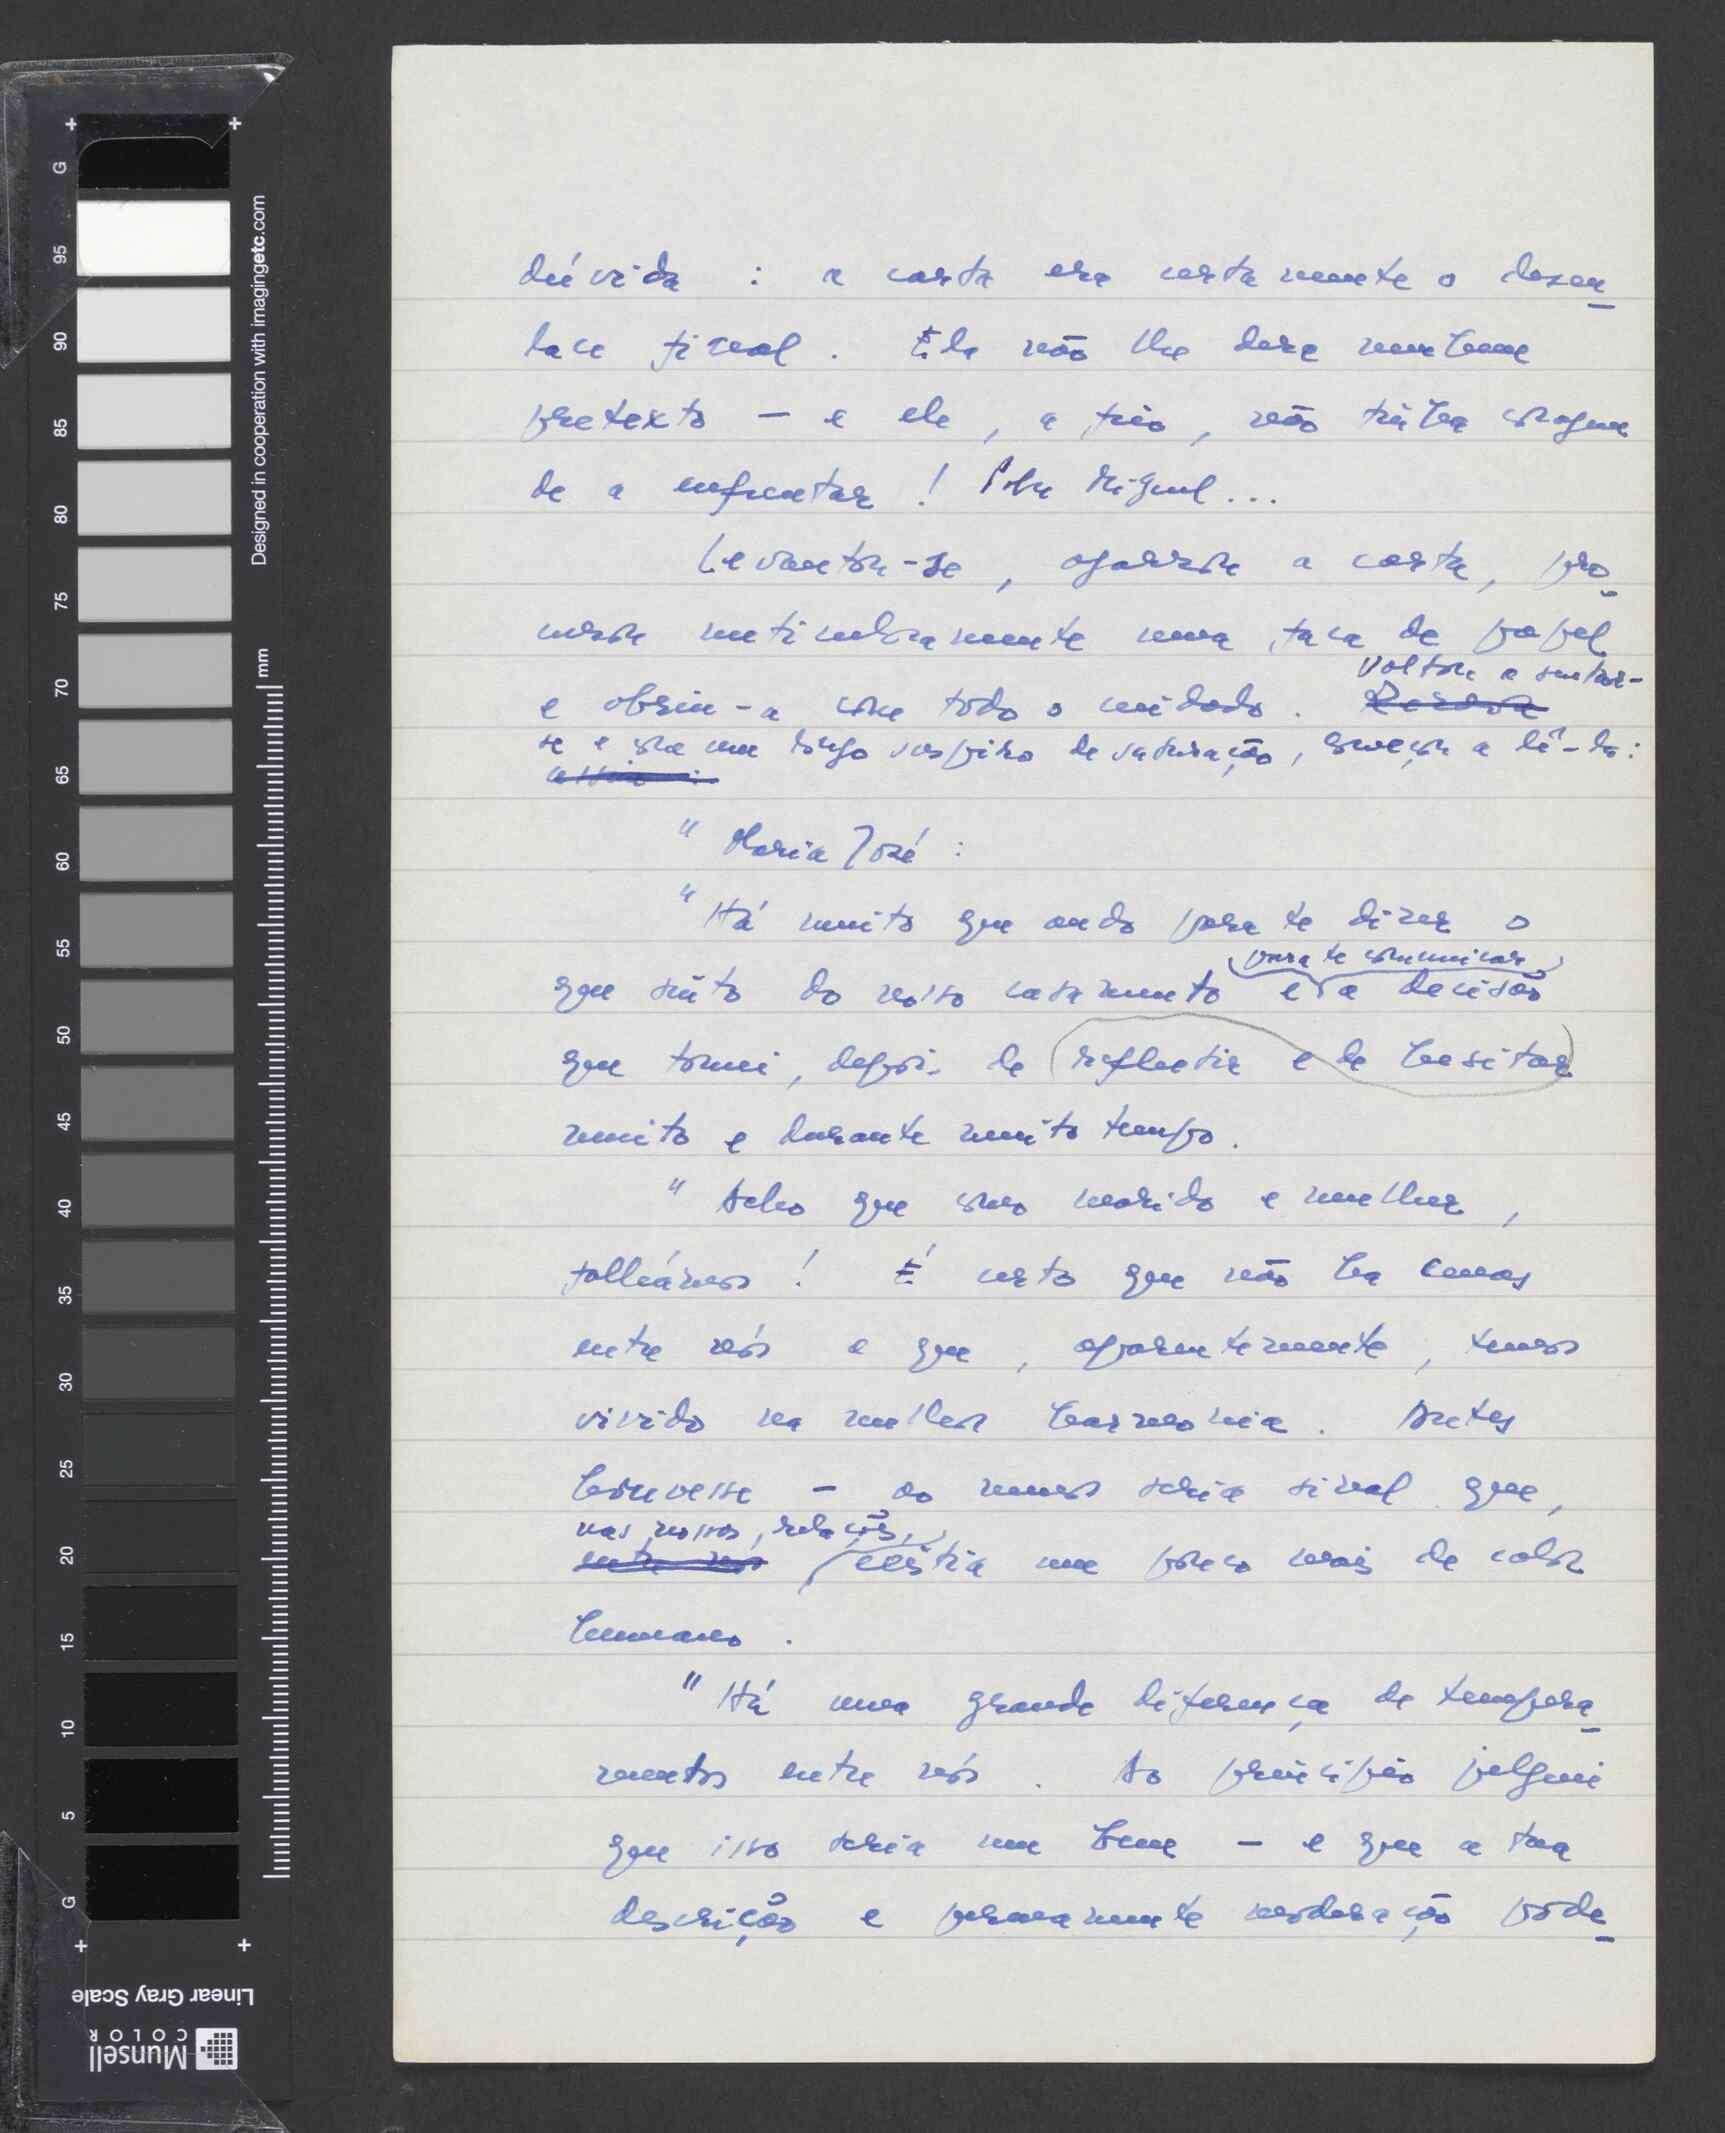 dúvida : a carta era certamente o desen
lace final . Ela não lhe dera nenhum
pretexto — e ele, a frio, não tinha coragem
de a enfrentar ! Pobre Miguel...
Levantou-se, agarrou a carta, pro
curou meticulosamente uma faca de papel
voltou a sentar-
e abriu-a com todo o cuidado .
se e com um longo suspiro de saturação, começou a lê-la:
" Maria José :
" Há muito que ando para te dizer o
para te comunicar
que sinto do nosso casamento e a decisão
que tomei, depois de reflectir e de hesitar
muito e durante muito tempo.
" Acho que como marido e mulher,
falhámos ! É certo que não há cenas
entre nós e que, aparentemente, temos
vivido na melhor harmonia . Antes
houvesse — ao menos seria sinal que,
nas nossas relações,
entre nós existia um pouco mais de calor
humano .
" Há uma grande diferença de tempera
mentos entre nós . Ao princípio julguei
que isso seria um bem — e que a tua
descrição e permanente moderação pode
Designed in cooperation with imagingetc.com
mm
G
95
90
85
80
75
70
65
60
55
50
45
40
35
30
25
20
15
10
5
G
Linear Gray Scale
Munsell
COLOR